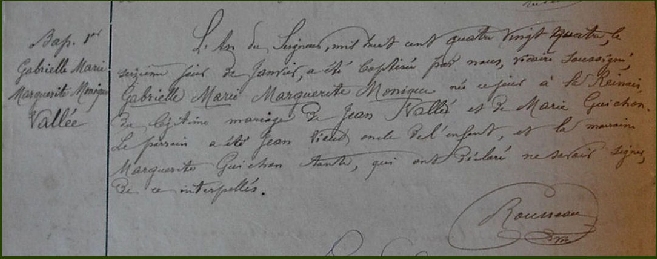 Bap. 1er
Gabrielle Marie
Marguerite Monique
Vallée
L'An du Seigneur, mil huit cent quatre vingt quatre, le
seizième jour de Janvier, a été baptisée par nous, vicaire soussigné
Gabrielle Marie Marguerite Monique née ce jour à la
du légitime mariage de Jean Vallée et de Marie Guichon.
Le parrain a été Jean oncle de l'enfant, et la marraine
Marguerite Guichon tante, qui ont déclaré ne savoir signer,
de ce interpellés.
Rousseau